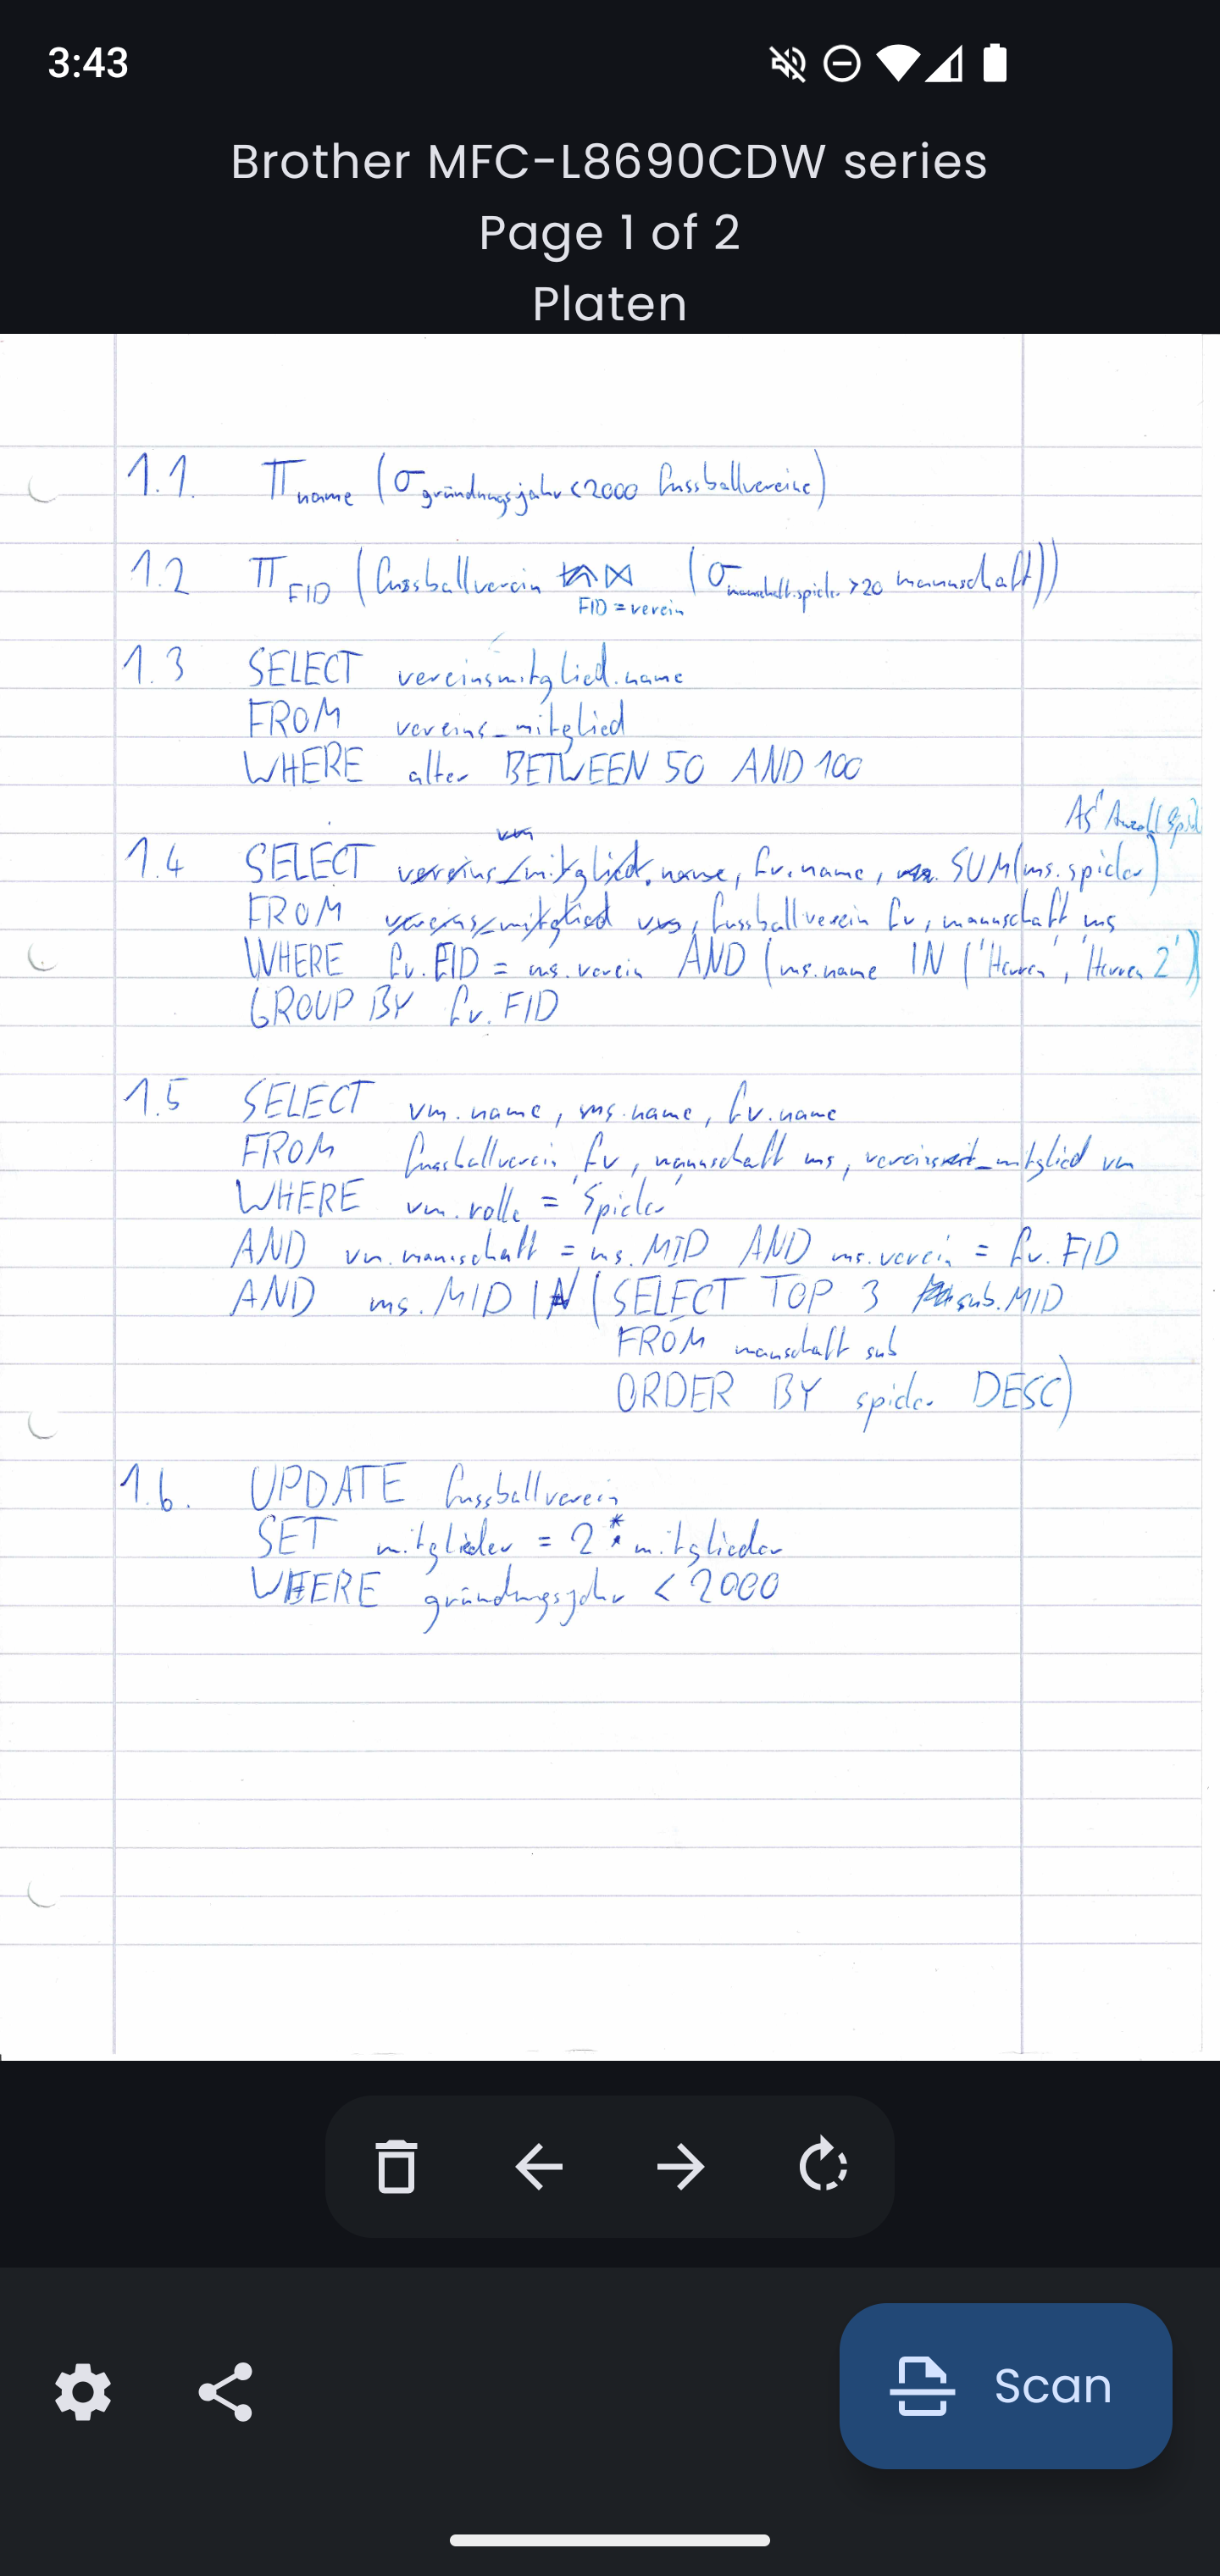 3:43
Brother MFC-L8690CDW series
Page 1 of 2
Platen
1.1. π name (σ gründungsjahr<2000 fussballvereine)
1.2 π FID (fussballverein ⋈ FID=verein (σ mannschaft.spieler>20 mannschaft))
1.3 SELECT vereinsmitglied.name
FROM vereins_mitglied
WHERE alter BETWEEN 50 AND 100
AS Anzahl
1.4 SELECT vereins_mitglied.name, fv.name, SUM(ms.spieler)
FROM vereins_mitglied vm, fussballverein fv, mannschaft ms
WHERE fv.FID = ms.verein AND (ms.name IN ('Herren', 'Herren 2')
GROUP BY fv.FID
1.5 SELECT vm.name, ms.name, fv.name
FROM fussballverein fv, mannschaft ms, vereins_mitglied vm
WHERE vm.rolle = 'Spieler'
AND vm.mannschaft = ms.MID AND ms.verein = fv.FID
AND ms.MID IN (SELECT TOP 3 sub.MID
FROM manschaft sub
ORDER BY spieler DESC)
1.6. UPDATE fussballverein
SET mitglieder = 2 * mitglieder
WHERE gründungsjahr < 2000
Scan